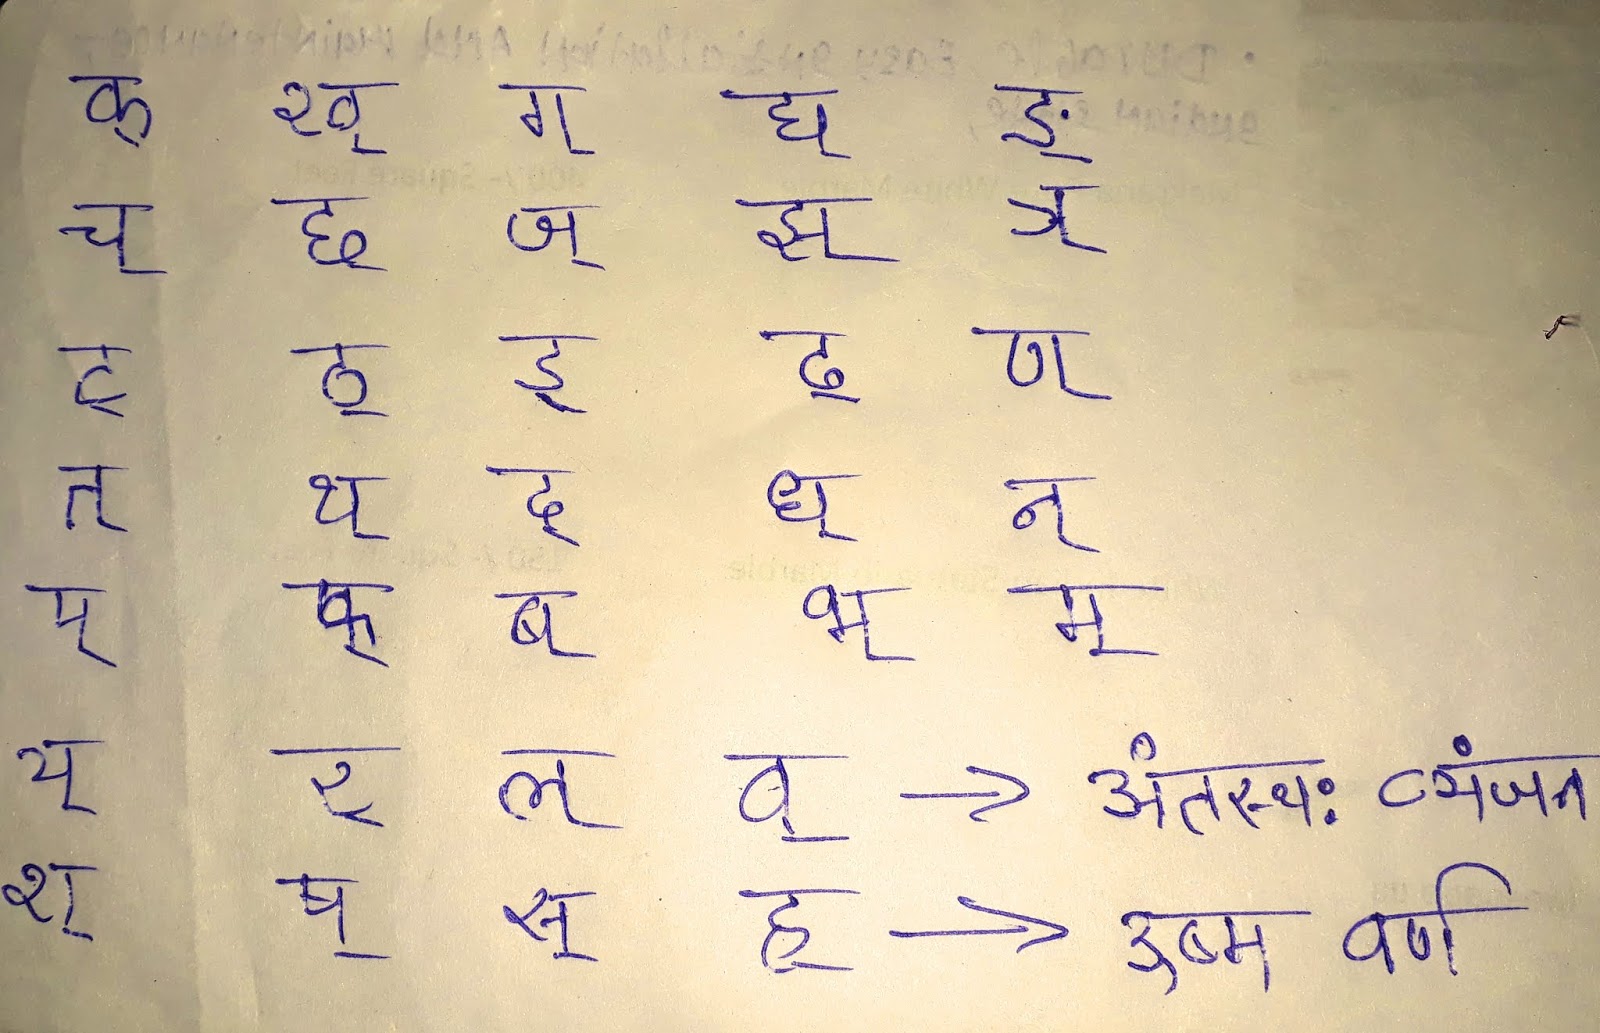 क् ख् ग् घ् ङ्
च् छ् ज् झ् ञ्
ट् ठ् ड् ढ् ण्
त् थ् द् ध् न्
प् फ् ब् भ् म्
य् र् ल् व् → अंतस्थः व्यंजन
श् ष् स् ह् → उष्म वर्ण